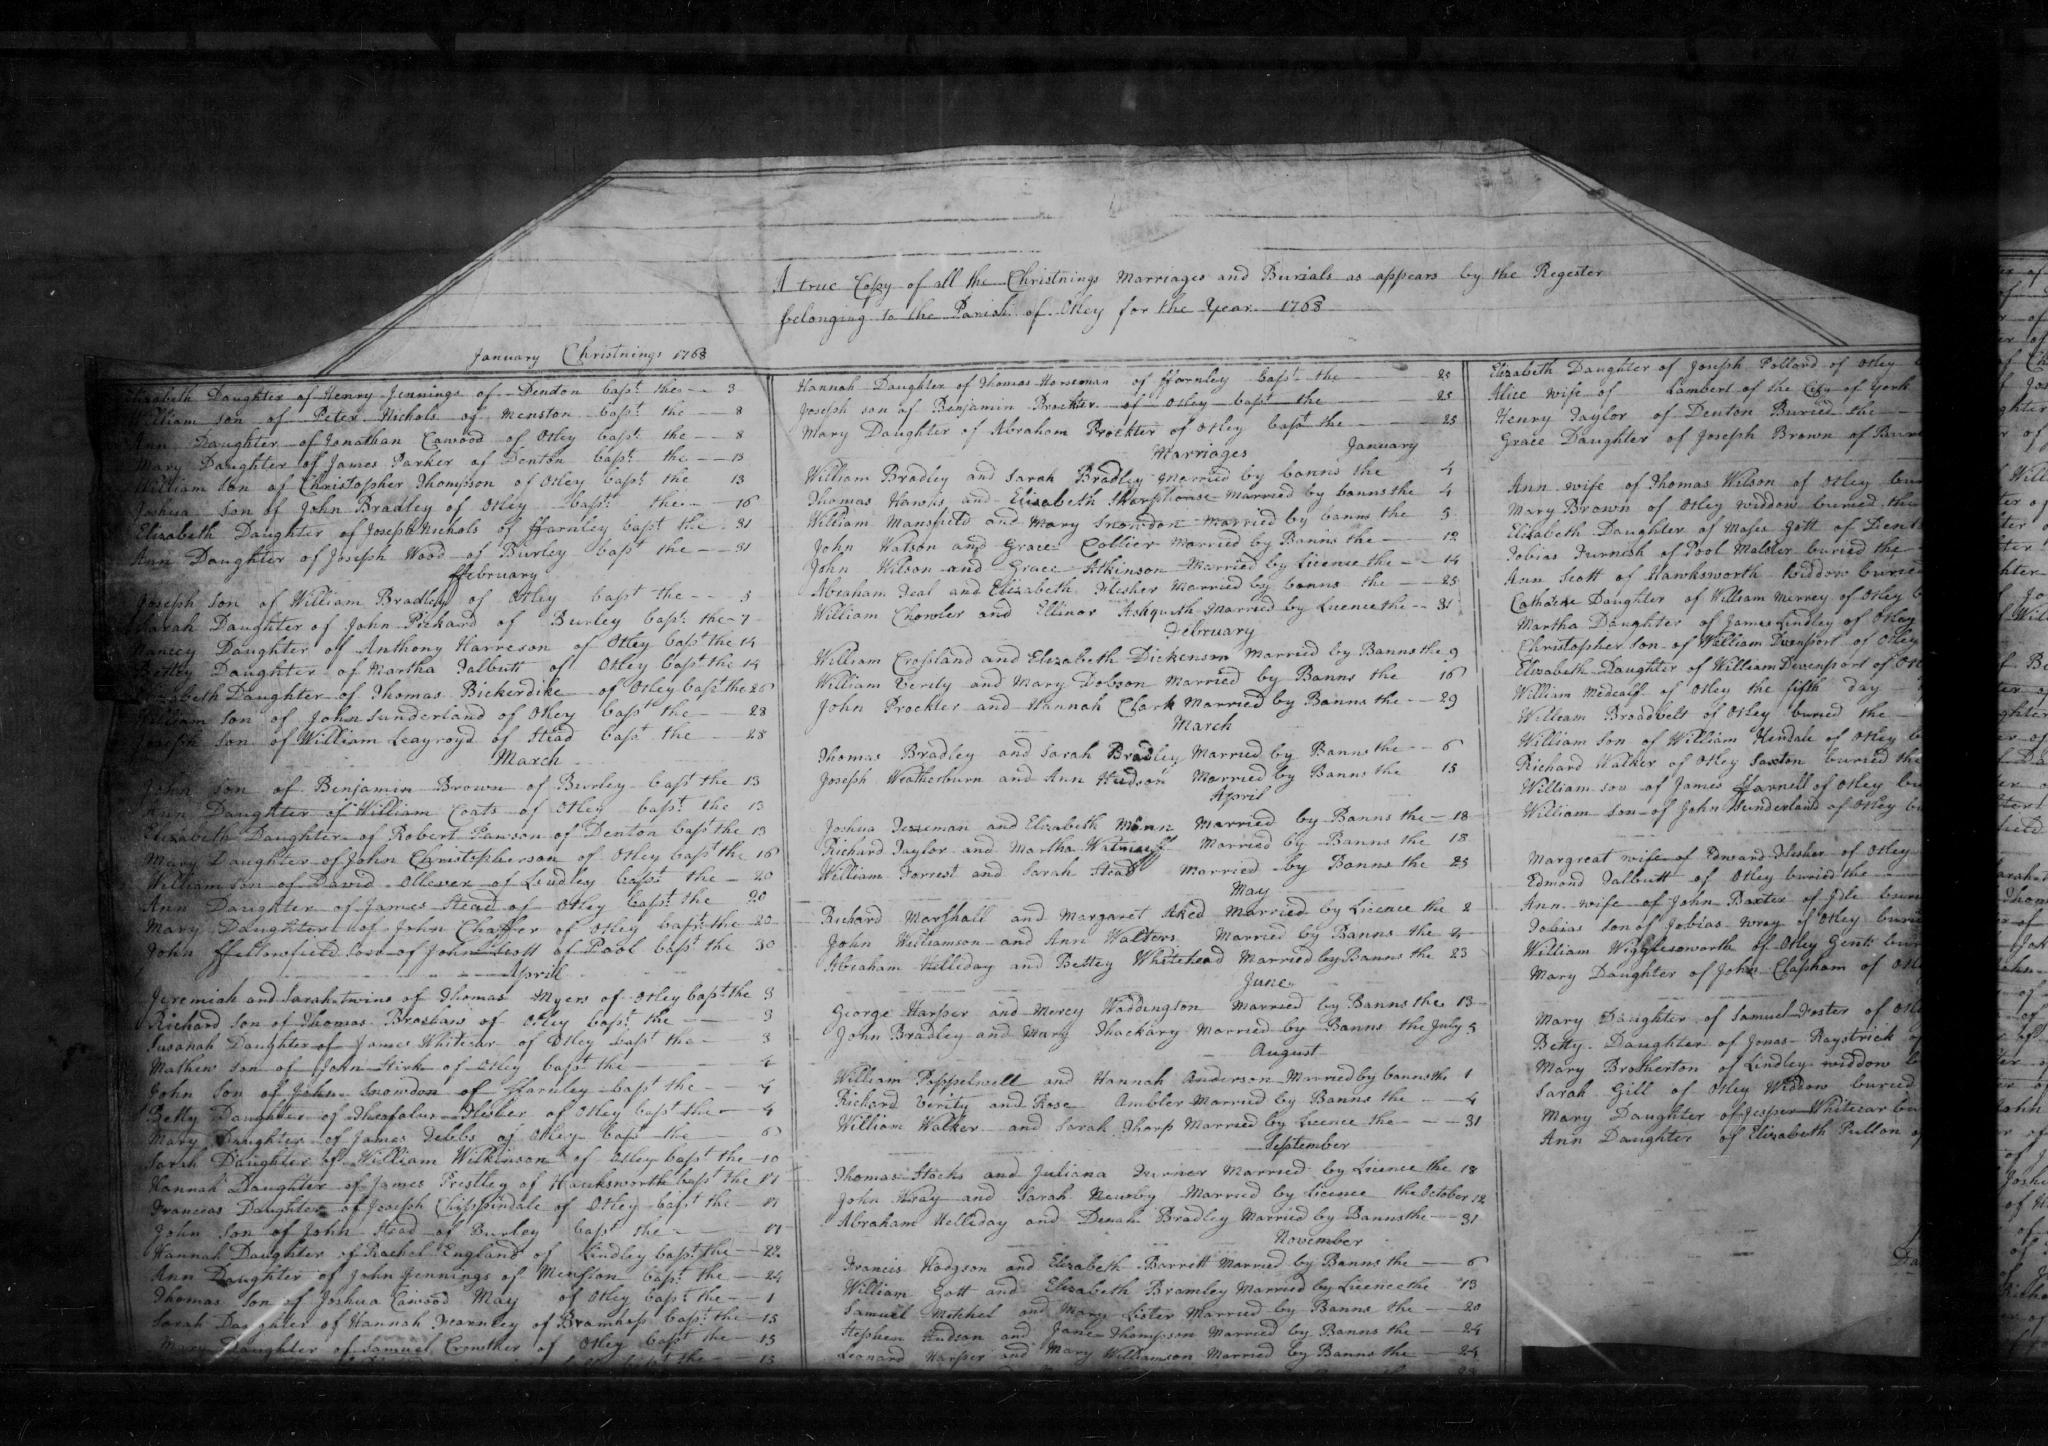 A true Copy of all the Christnings Marriages and Burials as appears by the Regester
belonging to the Parish of Otley for the Year 1768
January Christnings 1768
Elizabeth Daughter of Henry Jennings of Dendon bapt. the 3
William son of Peter Nichols of Menston bapt. the 8
Ann Daughter of Jonathan Cawood of Otley bapt. the 8
Mary Daughter of James Parker of Denton bapt. the 13
William son of Christopher Thompson of Otley bapt. the 13
Joshua son of John Bradley of Otley bapt. the 16
Elizabeth Daughter of Joseph Nichols of ffarnley bapt the 31
Ann Daughter of Joseph Wood of Burley bapt the 31
ffebruary
Joseph son of William Bradley of Otley bapt the 3
Sarah Daughter of John Pickard of Burley bapt. the 7
Nancey Daughter of Anthony Harreson of Otley bapt the 14
Bettey Daughter of Martha Talbutt of Otley bapt the 14
Elizabeth Daughter of Thomas Bickerdike of Otley bapt. the 26
William son of John Sunderland of Otley bapt the 28
Joseph son of William Leagroyd of Stead bapt the 28
March
John son of Benjamin Brown of Burley bapt the 13
Ann Daughter of William Coats of Otley bapt. the 13
Elizabeth Daughter of Robert Pawson of Denton bapt the 13
Mary Daughter of John Christopherson of Otley bapt the 16
William son of David Ollever of Lindley bapt the 20
Ann Daughter of James Stead of Otley bapt. the 20
Mary Daughter of John Chaffer of Otley bapt. the 20
John ffellowsfield son of John Scott of Paol bapt the 30
Aprill
Jeremiah and Sarah twins of Thomas Myers of Otley bapt. the 3
Richard son of Thomas of Otley bapt. the 3
Susanah Daughter of James Whitecar of Otley bapt the 3
Mathew son of John Kirk of Otley bapt the 4
John Son of John Snowdon of ffarnley bapt the 4
Betty Daughter of Theofolus Flesher of Otley bapt the 4
Mary Daughter of James Tebbs of Otley bapt the 6
Sarah Daughter of William Wilkinson of Otley bapt the 10
Hannah Daughter of James Prestley of Hauksworth bapt the 17
Franceas Daughter of Joseph Chippindale of Otley bapt the 17
John Son of John Stead of Burley bapt the 17
Hannah Daughter of Rachel England of Lindley bapt. the 22
Ann Daughter of John Jennings of Menston bapt. the 24
Thomas Son of Joshua Cawood May of Otley bapt. the 1
Sarah Daughter of Hannah ffarnley of Bramhop bapt. the 15
Mary Daughter of Samuel Crowther of Otley bapt the 15
the 13
Hannah Daughter of Thomas Horseman of ffarnley bapt. the 25
Joseph son of Benjamin Prockter of Otley bapt the 25
Mary Daughter of Abraham Prockter of Otley bapt the 25
Marriages January
William Bradley and Sarah Bradley Married by banns the 4
Thomas Hawks and Elizabeth Sharphouse Married by banns the 4
William Mansfield and Mary Snowdon Married by banns the 5
John Watson and Grace Collier Married by Banns the 12
John Wilson and Grace Atkinson Married by Licence the 14
Abraham Teal and Elizabeth Flesher Married by banns the 25
William Chowler and Ellinor Ashquith Married by Licence the 31
February
William Crossland and Elizabeth Dickenson Married by Banns the 9
William Verity and Mary Dobson Married by Banns the 16
John Prockter and Hannah Clark Married by Banns the 29
March
Thomas Bradley and Sarah Bradley Married by Banns the 6
Joseph Weatherburn and Ann Hudson Married by Banns the 15
April
Joshua and Elizabeth Mann Married by Banns the 18
Richard Taylor and Martha Married by Banns the 18
William Forrest and Sarah Stead Married by Banns the 25
May
Richard Marshall and Margaret Aked Married by Licence the 2
John Williamson and Ann Walters Married by Banns the 4
Abraham Helliday and Bettey Whitehead Married by Banns the 23
June
George Harper and Mercy Waddington Married by Banns the 13
John Bradley and Mary Thackary Married by Banns the July 5
August
William Poppelwell and Hannah Anderson Married by banns the 1
Richard Verity and Rose Ambler Married by Banns the 4
William Walker and Sarah Tharp Married by Licence the 31
September
Thomas Stocks and Juliana Turner Married by Licence the 18
John Wray and Sarah Neusby Married by licence the October 12
Abraham Helliday and Denah Bradley Married by Banns the 31
November
Francis Hodgson and Elizabeth Barrett Married by Banns the 6
William Gott and Elizabeth Bramley Married by Licence the 13
Samuel Mitchel and Mary Lister Married by Banns the 20
Stephen Hudson and Jane Thompson Married by Banns the 24
Leonard Harper and Mary Williamson Married by Banns the 24
Elizabeth Daughter of Joseph Pollard of Otley
Alice wife of Lambert of the City of York
Henry Taylor of Denton Buried the
Grace Daughter of Joseph Brown of
Ann wife of Thomas Wilson of Otley
Mary Brown of Otley widdow buried the
Elizabeth Daughter of Moses Gott of
Tobias Furnish of Pool Malster buried the
Ann Scott of Hawksworth Widdow
Catherine Daughter of William Merrey of Otley
Martha Daughter of James Lindley of Otley
Christopher Son of William Devenport of Otley
Elizabeth Daughter of William Devenport of
William Medcalf of Otley the fifth day
William Broadbelt of Otley buried the
William Son of William Hendale of Otley
Richard Walker of Otley Saxton buried the
William son of James ffarnell of Otley
William son of John Sunderland of Otley
Margreat wife of Edward Flesher of Otley
Edmond Talbutt of Otley buried the
Ann wife of John Baxter of Idle
Tobias son of Tobias Wray of Otley
William Wigglesworth of Otley Gent.
Mary Daughter of John Clapham of
Mary Daughter of Samuel Foster of
Betty Daughter of Jonas Raystrick
Mary Brotherton of Lindley widdow
Sarah Gill of Otley Widdow buried
Mary Daughter of Jesper Whitecar
Ann Daughter of Elizabeth Pullan